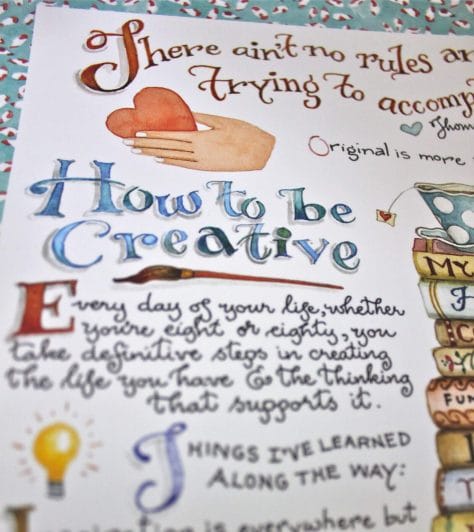 There ain't no rules
trying to
Original is more
How to be
Creative
Every day of your life, whether
you're eight or eighty, you
take definitive steps in creating
the life you have & the thinking
that supports it.
MY
FUN
THINGS I'VE LEARNED
ALONG THE WAY:
is everywhere but